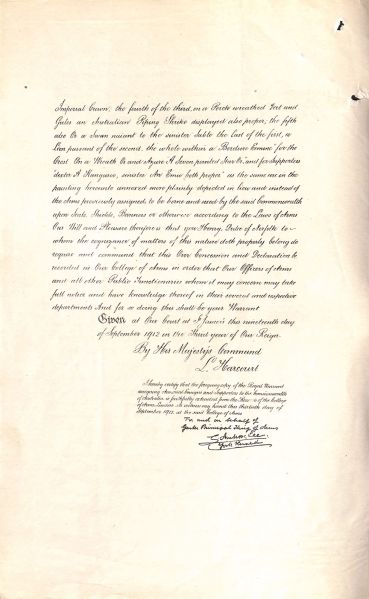 Imperial Crown, the fourth of the third, on a Perch wreathed Vert and
Gules an Australian Piping Shrike displayed also proper, the fifth
also Or a Swan naiant to the sinister Sable the last of the first, a
Lion passant of the second, the whole within a Bordure Ermine for the
Crest On a Wreath Or and Azure A Seven pointed Star Or, and for Supporters
dexter A Kangaroo, sinister An Emu both proper as the same are in the
painting hereunto annexed more plainly depicted in lieu and instead of
the Arms previously assigned to be borne and used by the said Commonwealth
upon Seals, Shields, Banners or otherwise according to the Laws of Arms
Our Will and Pleasure therefore is that you Henry, Duke of Norfolk to
whom the cognizance of matters of this nature doth properly belong do
require and command that this Our Concession and Declaration be
recorded in Our College of Arms in order that Our Officers of Arms
and all other Public Functionaries whom it may concern may take
full notice and have knowledge thereof in their several and respective
departments And for so doing this shall be your Warrant
Given at Our Court at St James's this nineteenth day
of September 1912 in the Third year of Our Reign.
By His Majesty's Command
L. Harcourt
I hereby certify that the foregoing copy of the Royal Warrant
assigning Armorial Ensigns and Supporters to the Commonwealth
of Australia is faithfully extracted from the Records of the College
of Arms, London As witness my hand this thirtieth day of
September 1912, at the said College of Arms
For and on behalf of
Garter Principal King of Arms
York Herald